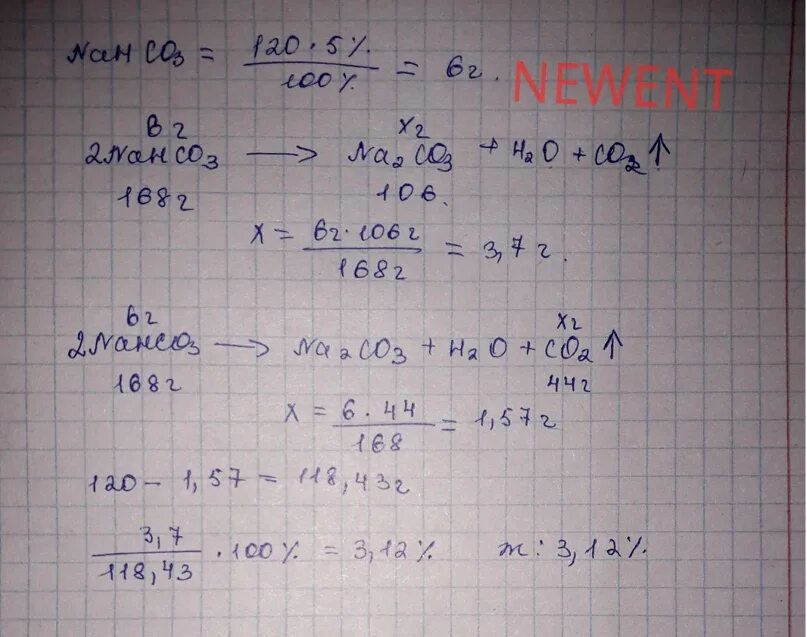 NaHCO3 = 120 · 5% / 100% = 6г. NEWENT
6г X г
2NaHCO3 → Na2CO3 + H2O + CO2↑
168г 106.
X = 6г · 106г / 168г = 3,7 г.
6г Xг
2NaHCO3 → Na2CO3 + H2O + CO2↑
168г 44г
X = 6 · 44 / 168 = 1,57г
120 - 1,57 = 118,43г
3,7 / 118,43 · 100% = 3,12% ж: 3,12%.